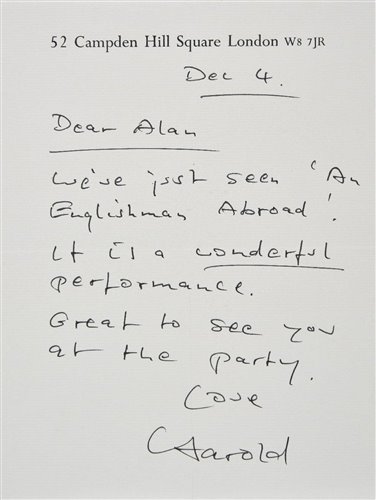 52 Campden Hill Square London W8 7JR
Dec 4.
Dear Alan
We've just seen 'An
Englishman Abroad'.
It is a wonderful
performance.
Great to see you
at the party.
Love
Harold